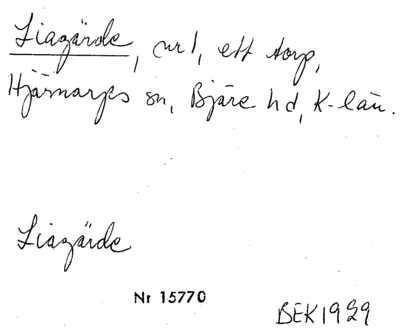 Liagärde, nr 1, ett torp,
Hjärnarps sn, Bjäre hd, K-län.
Liagärde
Nr 15770
BEK 1929